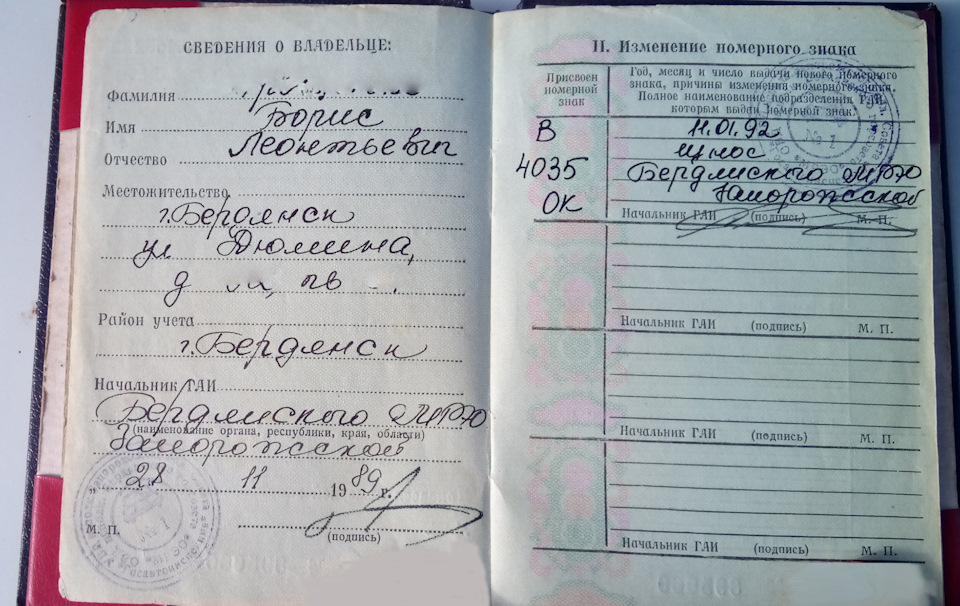 СВЕДЕНИЯ О ВЛАДЕЛЬЦЕ:
Фамилия
Имя Борис
Отчество Леонтьевич
Местожительство
г. Бердянск
ул. Дюмина,
д кв
Район учета
г. Бердянск
Начальник ГАИ
Бердянского МРЭО
(наименование органа, республики, края, области)
Запорожской
„28 11 1989 г.
М. П.
(подпись)
II. Изменение номерного знака
Присвоен номерной знак
Год, месяц и число выдачи нового номерного
знака, причины изменения номерного знака.
Полное наименование подразделения ГАИ,
которым выдан номерной знак.
В 11.01.92
износ
4035 Бердянского МРЭО
ОК Запорожской
Начальник ГАИ (подпись) М. П.
Начальник ГАИ (подпись) М. П.
Начальник ГАИ (подпись) М. П.
Начальник ГАИ (подпись) М. П.